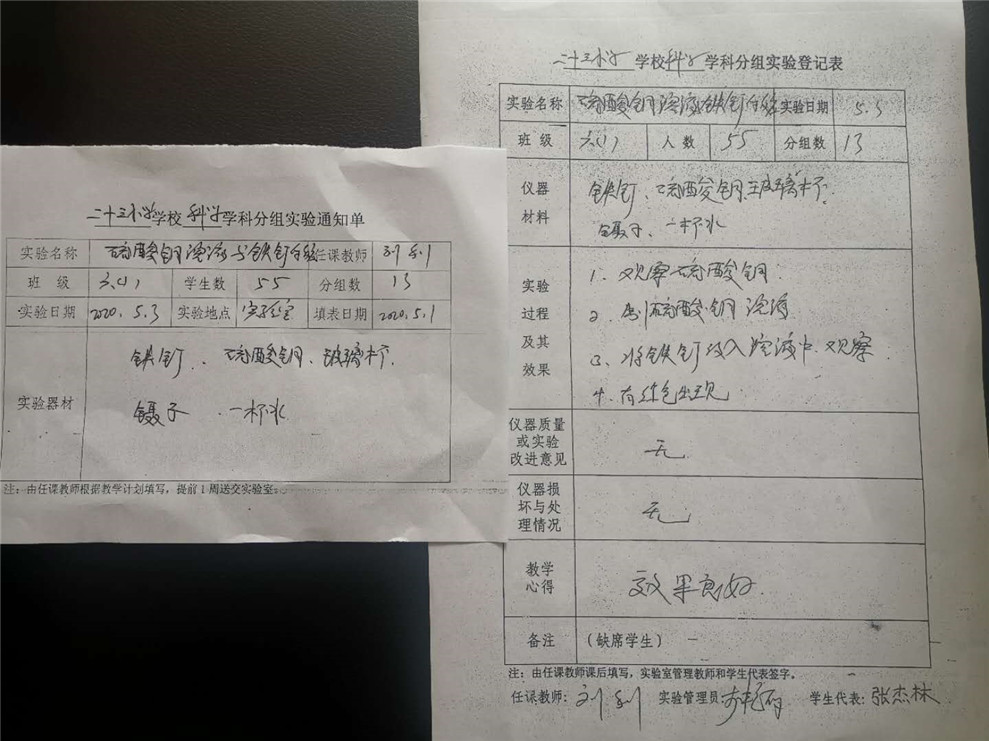 二十三小学学校科学学科分组实验通知单
实验名称 硫酸铜溶液与铁钉实验 任课教师 刘利
班 级 六(1) 学生数 55 分组数 13
实验日期 2020.5.3 实验地点 实验室 填表日期 2020.5.1
实验器材 铁钉、硫酸铜、玻璃杯、
镊子、一杯水
注:由任课教师根据教学计划填写,提前1周送交实验室。
二十三小学学校科学学科分组实验登记表
实验名称 硫酸铜溶液铁钉实验 实验日期 5.3
班 级 六(1) 人 数 55 分组数 13
仪器材料 铁钉、硫酸铜、玻璃杯、
镊子、一杯水
实验过程及其效果 1. 观察硫酸铜
2. 制硫酸铜溶液
3. 将铁钉放入溶液中.观察
4. 有红色出现
仪器质量或实验改进意见 无
仪器损坏与处理情况 无
教学心得 效果良好
备注 (缺席学生) —
注:由任课教师课后填写,实验室管理教师和学生代表签字。
任课教师: 刘利 实验管理员: 学生代表: 张杰林